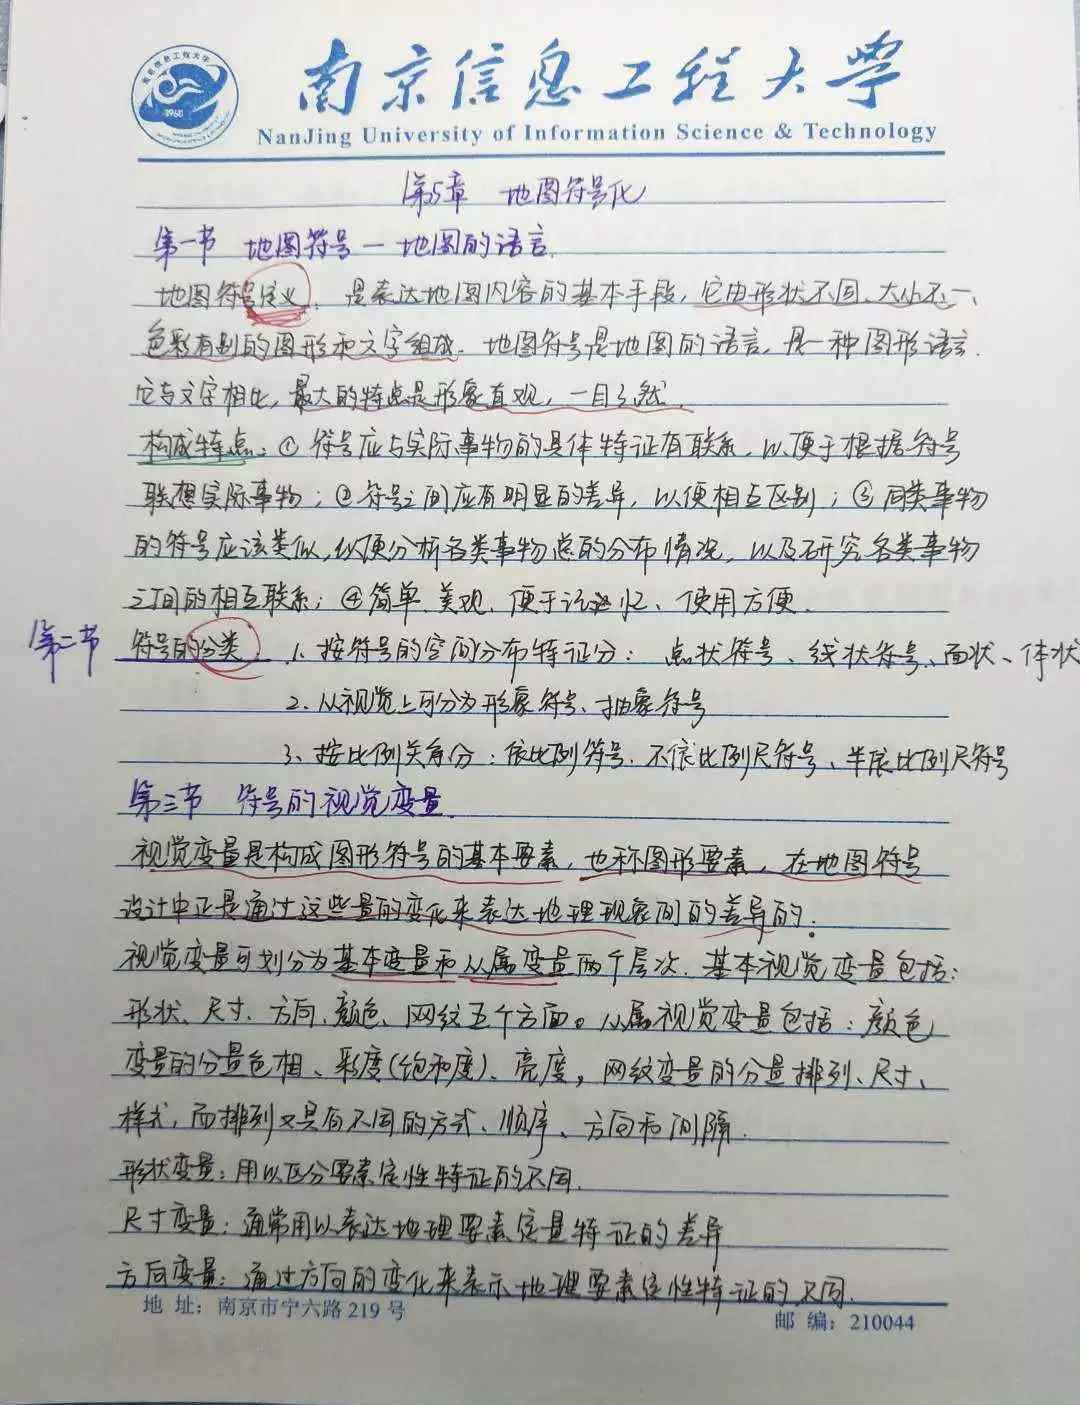 南京信息工程大学
NanJing University of Information Science & Technology
南京信息工程大学
1960
第5章 地图符号化
第一节 地图符号—地图的语言.
地图符号定义. 是表达地图内容的基本手段, 它由形状不同、大小不一、
色彩有别的图形和文字组成. 地图符号是地图的语言, 是一种图形语言.
它与文字相比, 最大的特点是形象直观, 一目了然.
构成特点: ① 符号应与实际事物的具体特征有联系, 以便于根据符号
联想实际事物; ②符号之间应有明显的差异, 以便相互区别; ③ 同类事物
的符号应该类似, 以便分析各类事物总的分布情况, 以及研究各类事物
之间的相互联系; ④简单、美观、便于记忆、使用方便.
第二节 符号的分类 1、按符号的空间分布特征分: 点状符号、线状符号、面状、体状
2、从视觉上可分为形象符号、抽象符号
3、按比例关系分: 依比例符号、不依比例尺符号、半依比例尺符号
第三节 符号的视觉变量.
视觉变量是构成图形符号的基本要素, 也称图形要素, 在地图符号
设计中正是通过这些量的变化来表达地理现象间的差异的.
视觉变量可划分为基本变量和从属变量两个层次. 基本视觉变量包括:
形状、尺寸、方向、颜色、网纹五个方面。从属视觉变量包括: 颜色
变量的分量色相、彩度(饱和度)、亮度, 网纹变量的分量排列、尺寸、
样式, 而排列又具有不同的方式、顺序、方向和间隔.
形状变量: 用以区分要素定性特征的不同.
尺寸变量: 通常用以表达地理要素定量特征的差异
方向变量: 通过方向的变化来表示地理要素定性特征的不同.
地 址: 南京市宁六路 219 号 邮 编: 210044